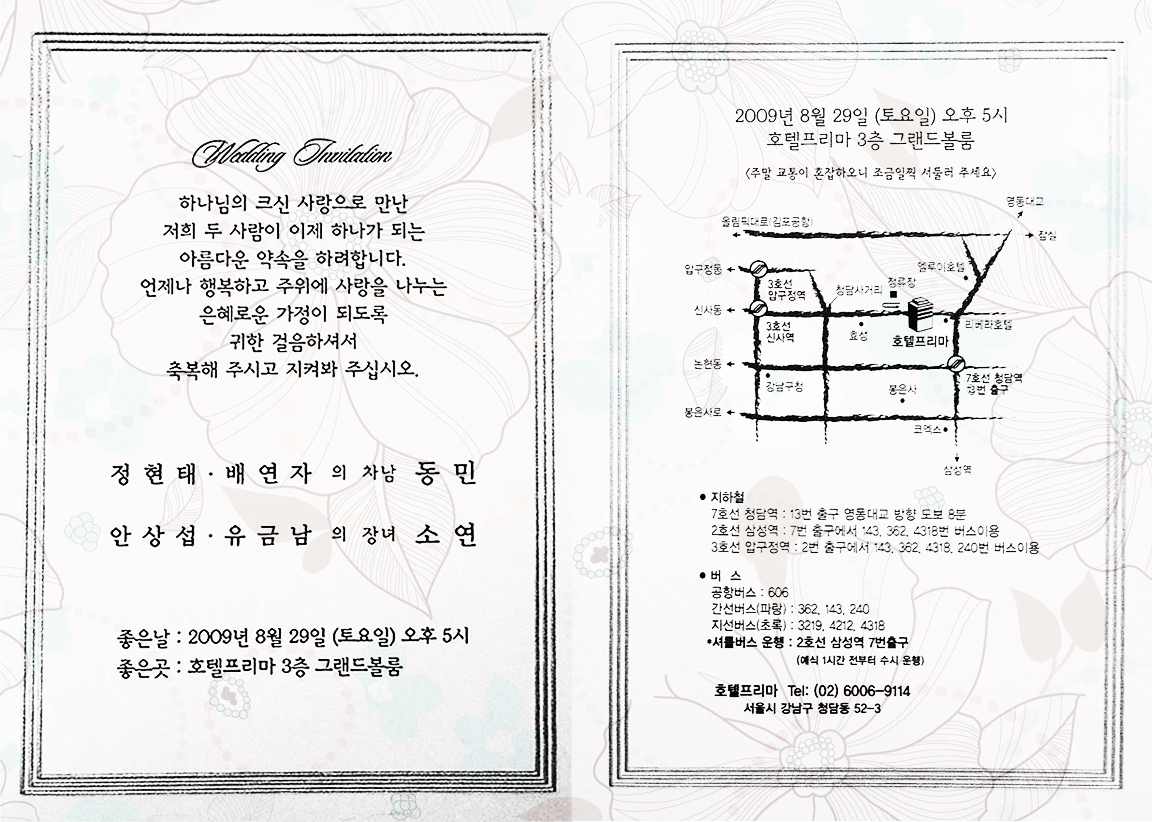 Wedding Invitation
하나님의 크신 사랑으로 만난
저희 두 사람이 이제 하나가 되는
아름다운 약속을 하려합니다.
언제나 행복하고 주위에 사랑을 나누는
은혜로운 가정이 되도록
귀한 걸음하셔서
축복해 주시고 지켜봐 주십시오.
정현태 · 배연자 의 차남 동민
안상섭 · 유금남 의 장녀 소연
좋은날 : 2009년 8월 29일 (토요일) 오후 5시
좋은곳 : 호텔프리마 3층 그랜드볼룸
2009년 8월 29일 (토요일) 오후 5시
호텔프리마 3층 그랜드볼룸
〈주말 교통이 혼잡하오니 조금일찍 서둘러 주세요〉
영동대교
올림픽대로(김포공항)
잠실
압구정동
엘루이호텔
3호선
압구정역
청담사거리
정류장
신사동
3호선
신사역
효성
호텔프리마
리베라호텔
논현동
강남구청
봉은사
7호선 청담역
13번 출구
봉은사로
코엑스
삼성역
● 지하철
7호선 청담역 : 13번 출구 영동대교 방향 도보 8분
2호선 삼성역 : 7번 출구에서 143, 362, 4318번 버스이용
3호선 압구정역 : 2번 출구에서 143, 362, 4318, 240번 버스이용
● 버 스
공항버스 : 606
간선버스(파랑) : 362, 143, 240
지선버스(초록) : 3219, 4212, 4318
*셔틀버스 운행 : 2호선 삼성역 7번출구
(예식 1시간 전부터 수시 운행)
호텔프리마 Tel: (02) 6006-9114
서울시 강남구 청담동 52-3